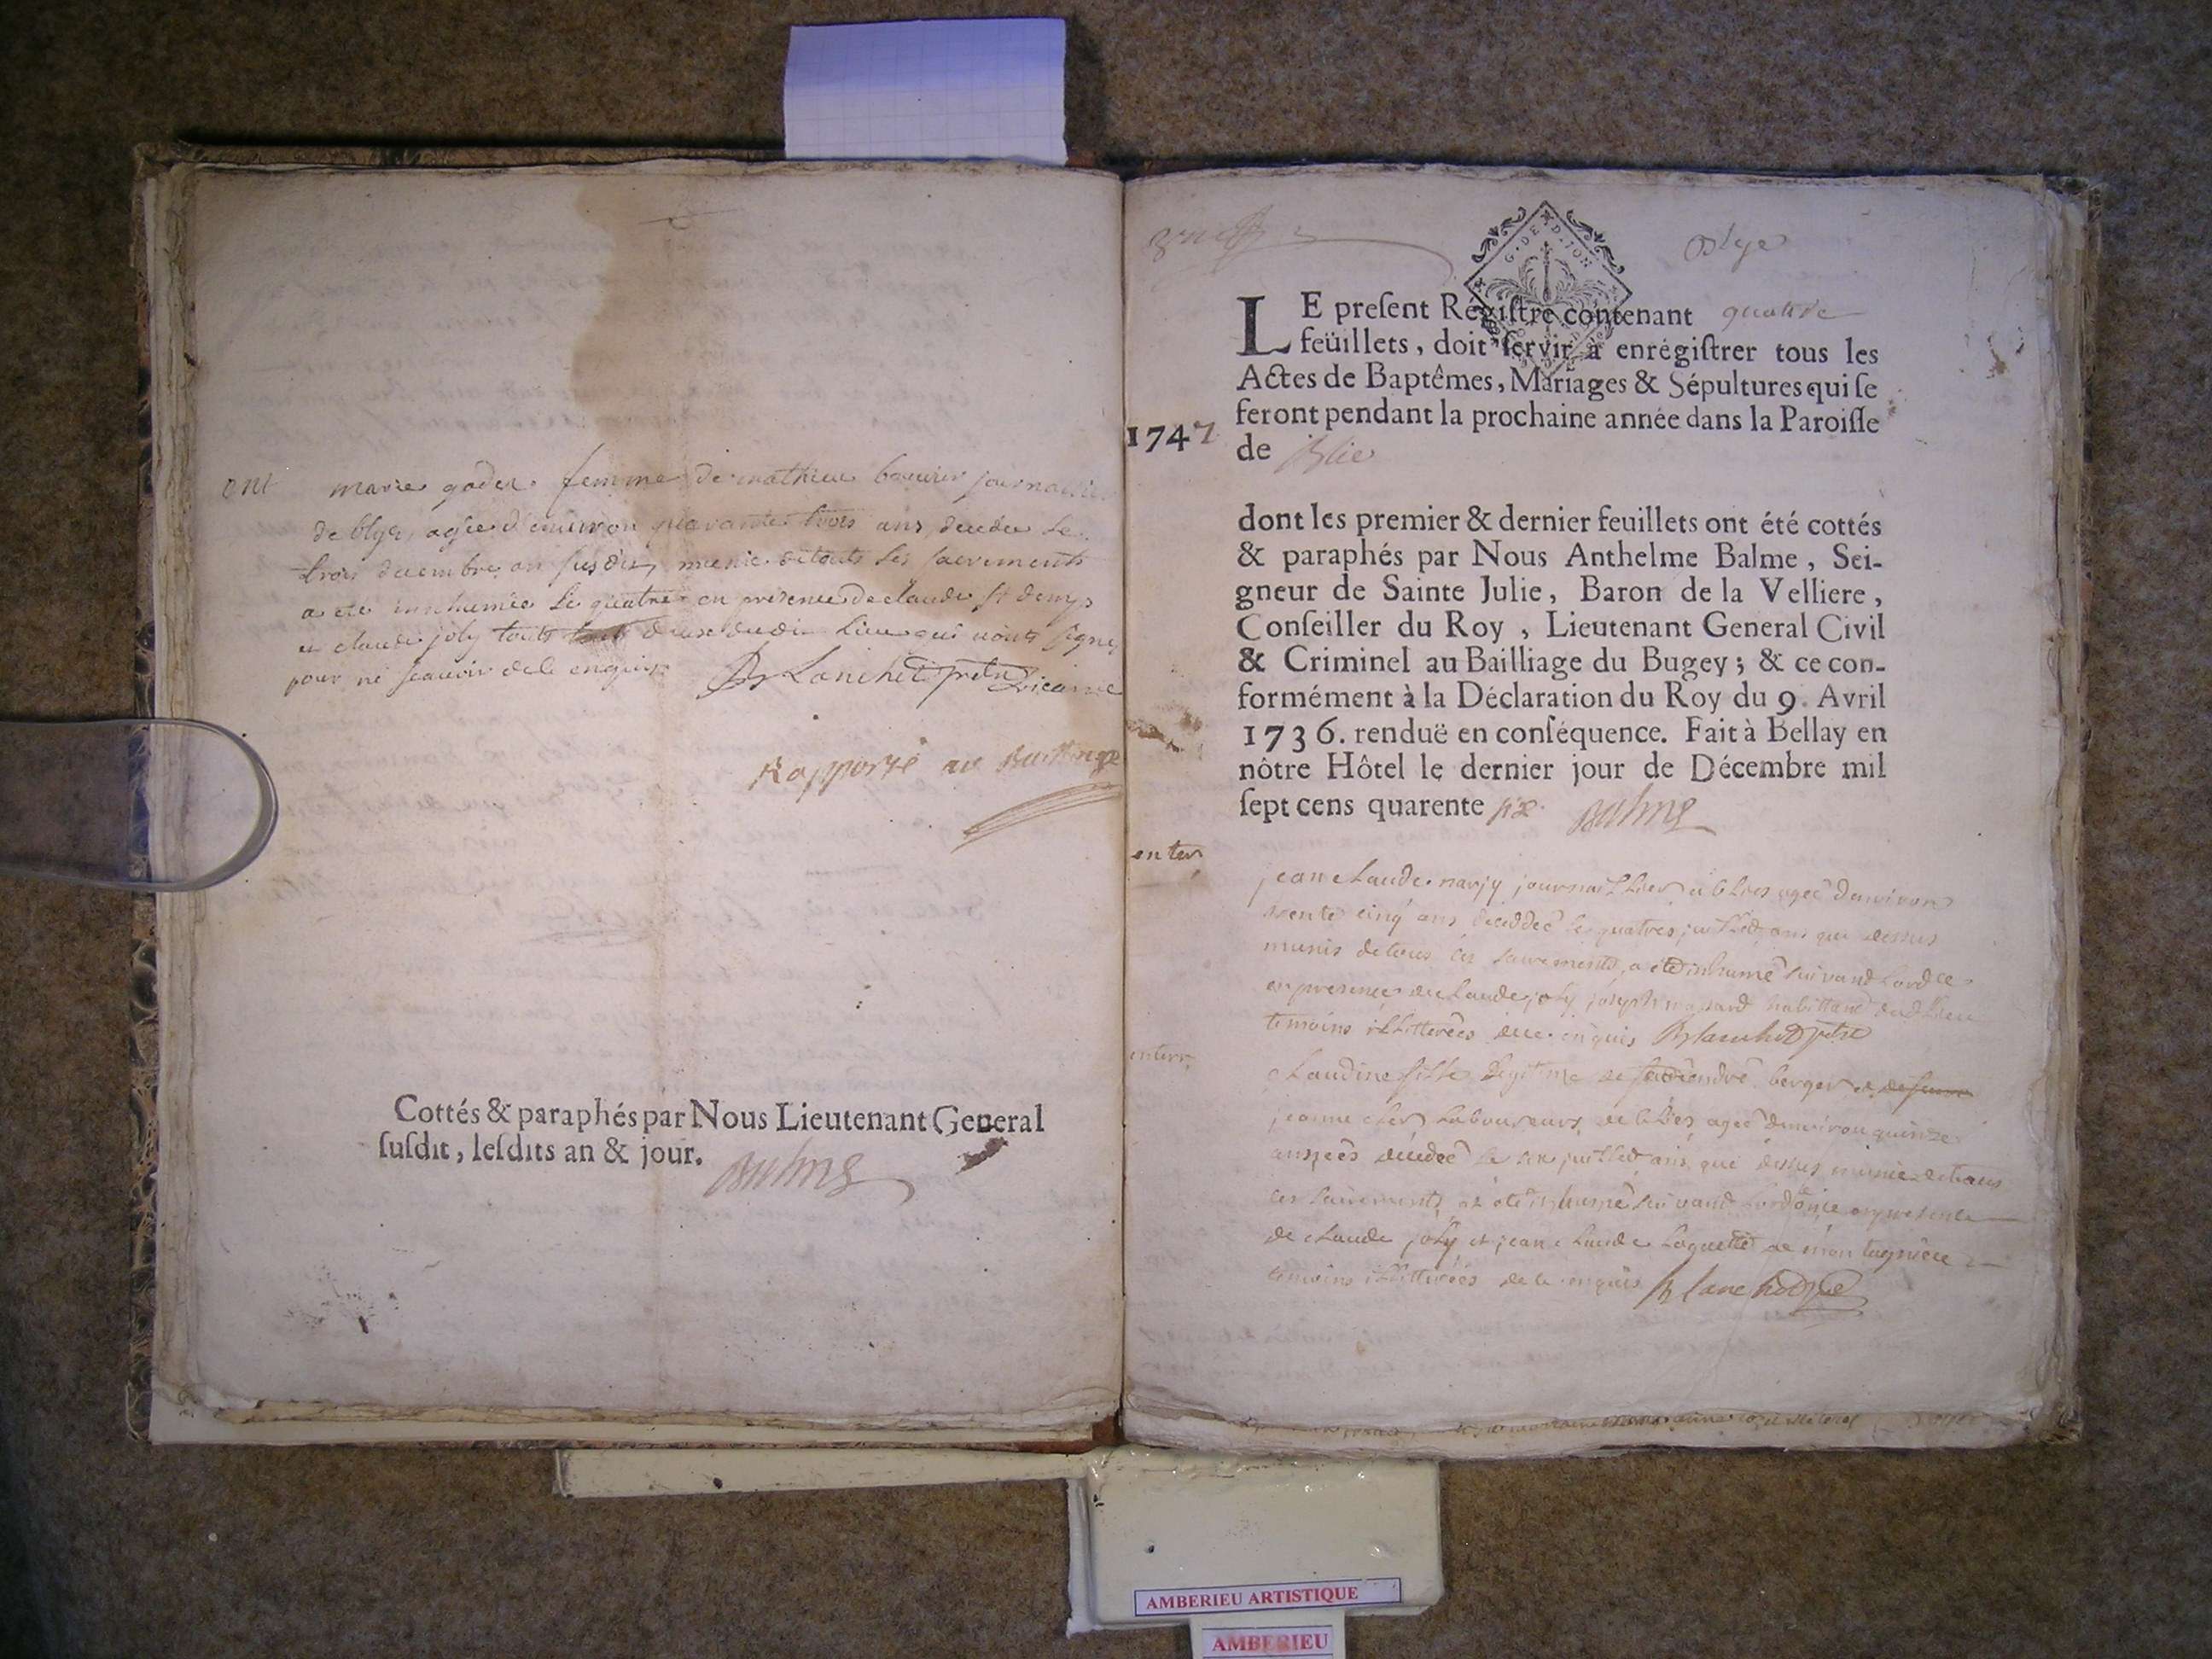 ent
marie goder femme de mathieu journallier
de blye, agée d'environ quarante trois ans, decedee le
trois decembre an susdit, munie de touts les sacrements
a ete innhumée le quatre en presence de claude st denys
et claude joly touts deux dudit lieu qui n'onts signe
pour ne scavoir de ce enquis Blanchet pretre vicaire
Rapporté au Bailliage
Cottés & paraphés par Nous Lieutenant General
ſuſdit, leſdits an & jour. Balme
G. DE DIJON
Blye
LE preſent Régiſtre contenant quatre
feüillets, doit ſervir à enrégiſtrer tous les
Actes de Baptêmes, Mariages & Sépultures qui ſe
feront pendant la prochaine année dans la Paroiſſe
1747
de Blie
dont les premier & dernier feuillets ont été cottés
& paraphés par Nous Anthelme Balme, Sei-
gneur de Sainte Julie, Baron de la Velliere,
Conſeiller du Roy, Lieutenant General Civil
& Criminel au Bailliage du Bugey; & ce con-
formément à la Déclaration du Roy du 9. Avril
1736. renduë en conſéquence. Fait à Bellay en
nôtre Hôtel le dernier jour de Décembre mil
ſept cens quarente six Balme
enter
jean claude journallier à blies ageé d'environ
trente cinq ans decedeé le quatres juilled ans que dessus
munis de tous les sacrements, a été inhumé suivand lordre
en presence de claude joly, joseph habittand dud lieu
temoins illitterées de ce enquis Blanchet ptre
enterr
claudine fille legitime de andré berger et
jeanne laboureurs de blies ageé d'environ quinze
anneés decedeé le six juilled ans que dessus munie de tous
les sacrements at été inhumé suivand en presence
de claude joly et jean claude de montagnieu
temoins illitterées de ce enquis Blanchet ptre
AMBERIEU ARTISTIQUE
AMBERIEU